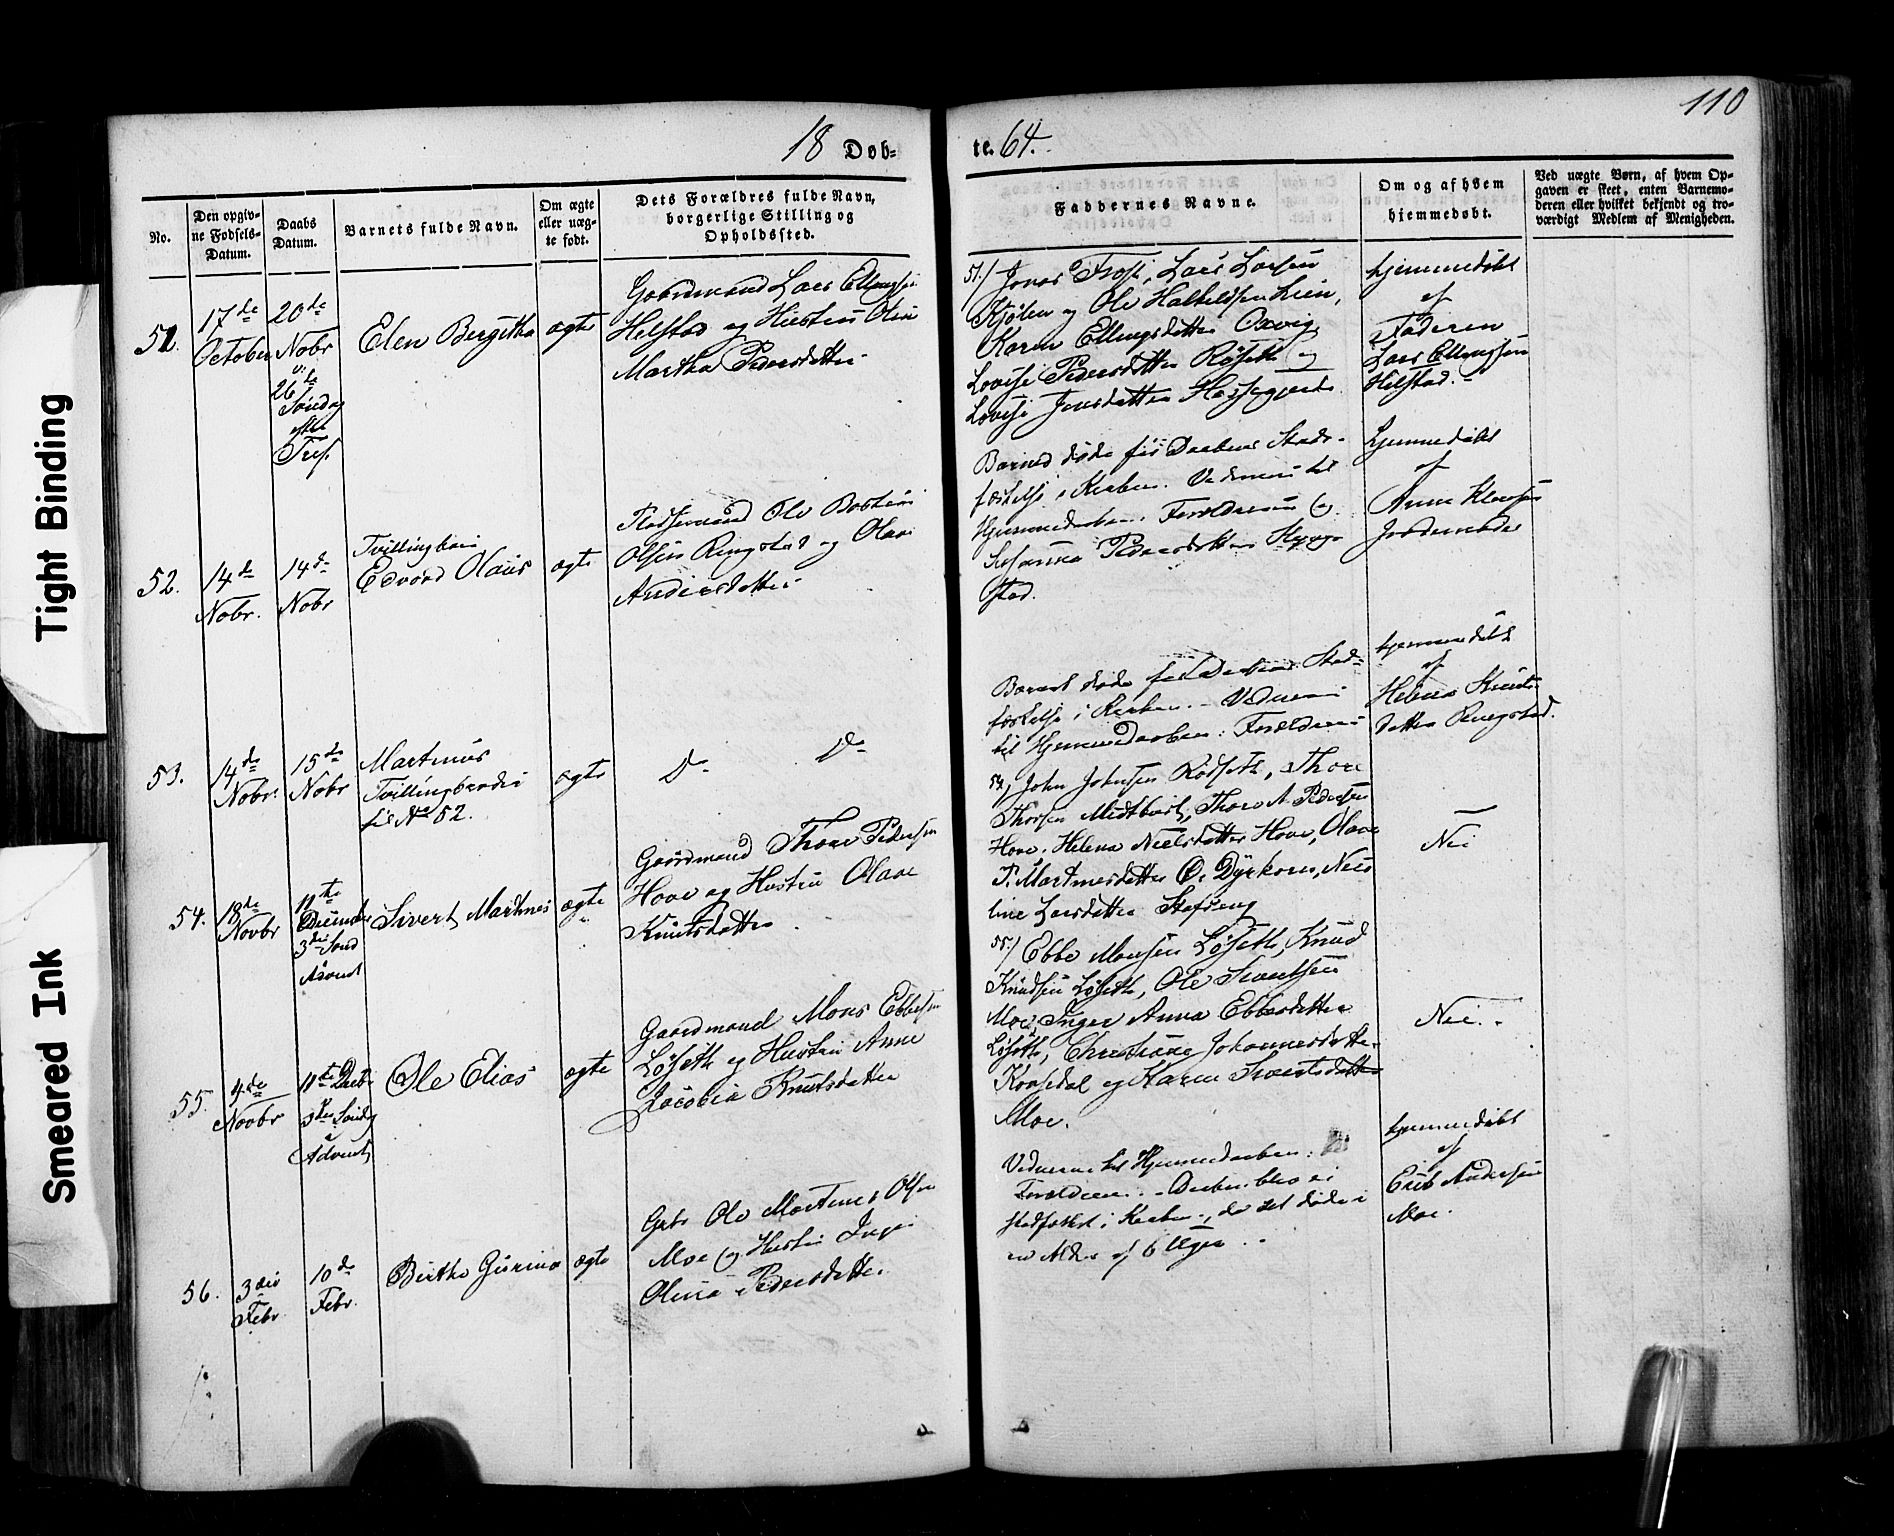 110
18 Døb-
te. 64.
No.
Den opgiv-
ne Fødsels-
Datum.
Daabs
Datum.
Barnets fulde Navn.
Om ægte
eller uæg-
te født.
Dets Forældres fulde Navn,
borgerlige Stilling og
Opholdssted.
Faddernes Navne.
Om og af hvem
hjemmedøbt.
Ved uægte Børn, af hvem Op-
gaven er skeet, enten Barnemo-
deren eller hvilket bekjendt og tro-
værdigt Medlem af Menigheden.
51.
17de
October
20de
Nobr
26de
Søndag
efter
Tref.
Elen Bergitha
ægte
Gaardmand Lars Ellingsen
Helstad og Hustru Oline
Martha Pedersdatter
51/ Jonas Frost, Lars Larsen
Kjølen og Ole Halkildsen Lien,
Karen Ellingsdatter Oxvig,
Lovise Pedersdatter Røseth og
Lovise Jensdatter
hjemmedøbt
af
Faderen
Lars Ellingsen
Helstad.
52.
14de
Nobr.
14de
Nobr
Tvillingbarn
Edvard Olaus
ægte
Pladsemand Ole Bastian
Olsen Ringstad og Olave
Andersdatter
Barnet døde før Daabens Stad-
fæstelse i Kirken. Vidnerne til
Hjemmedaaben: Forældrene og
Susanna Pedersdatter
stad.
hjemmedøbt
af
Anne Klausen
Jordemoder
53.
14de
Nobr.
15de
Nobr
Martinus
Tvillingbroder
til No 52.
ægte
Do Do
Barnet døde før Daabens Stad-
fæstelse i Kirken. Vidnerne
til Hjemmedaaben: Forældrene
hjemmedøbt
af
Helene Knuts-
datter Ringstad.
54.
18de
Novbr
11te
Decembr
3die Sønd
Advent
Sivert Martines
ægte
Gaardmand Thore Pedersen
Hove og Hustru Olave
Knutsdatter
54, John Johnsen Rødseth, Thore
Thorsen Midtbøst, Thore A. Pedersen
Hove, Helena Nielsdatter Hove, Olave
P. Martinesdatter Ø. Dyrkorn, Nico
line Larsdatter
Nei
55.
4de
Novbr
11te Decbr
3die Søndag
i
Advent
Ole Elias
ægte
Gaardmand Mons Ebbesen
Løseth og Hustru Anne
Jacobia Knutsdatter
55/ Ebbe Monsen Løseth, Knud
Knudsen Løseth, Ole Sivertsen
Moe, Inger Anna Ebbesdatter
Løseth, Christiane Johannesdatter
og Karen Sivertsdatter
Moe.
Nei.
56.
3die
Febr
10de
Febr.
Birthe Gurina
ægte
Gbr Ole Martinus Olsen
Moe og Hustru Inger
Olina Pedersdatter
Vidnerne til Hjemmedaaben:
Forældrene. Daaben blev ei
stadfæstet i Kirken, da det døde i
en Alder af 6 Uger.
hjemmedøbt
af
Erik Andersen
Moe.
Tight Binding
Smeared Ink